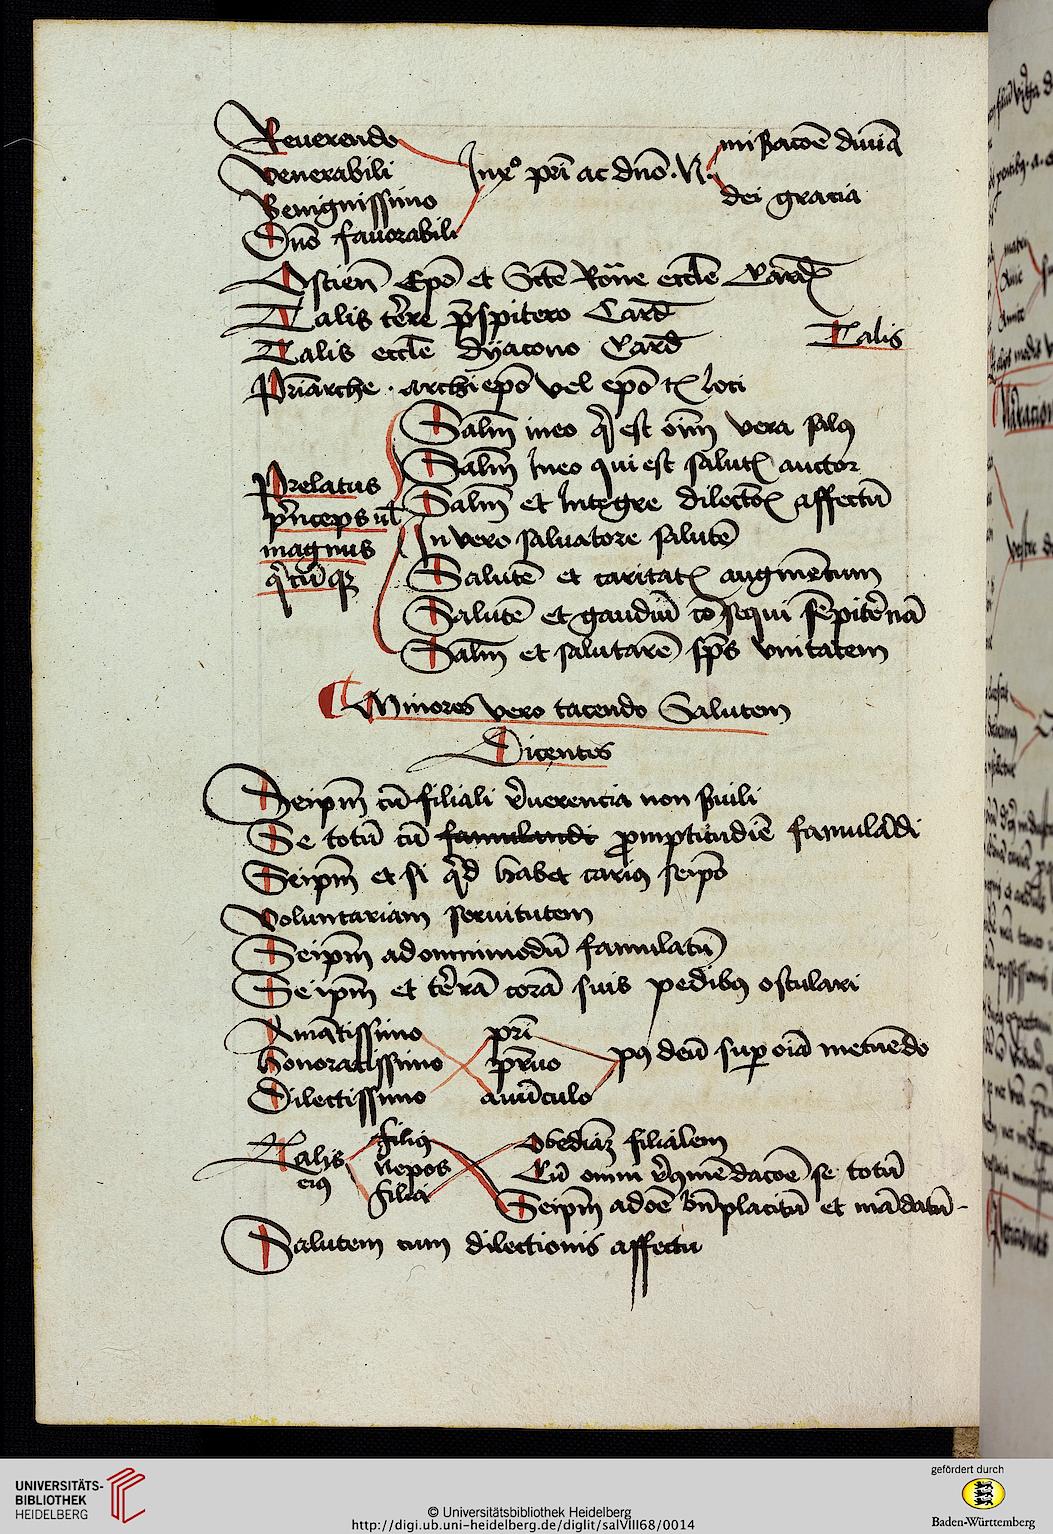 Reuerendo
venerabili
Benignissimo
Dno̅ fauorabili
In xͦ pri̅ ac dno̅ .N.
miserac̅oe̅ diui̅a
dei gracia
Ostien̅ Epo̅ et Scte̅ Ro̅ne eccl̅e Card̅
Talis te̅re p̅spitero Card̅
Talis eccl̅e dyacono Card̅
Talis
Pri̅arche . archiepo̅ vel epo̅ loci
Prelatus
p̅nceps ul̅
magnus
q̅cu̅q̨
Salm̅ in eo q̅ est oi̅m vera salꝰ
Salm̅ In eo qui est salutꝭ auctor
Salm̅ et Integre dilecto̅ꝭ affectu̅
In vero saluatore salute̅
Salute̅ et caritatꝭ augme̅tum
Salute̅ et gaudiu̅ co̅sequi se̅pite̅rna̅
Salm̅ et salutare̅ sp̅s vnitatem
Minores vero tacendo Salutem
Dicentes
Seipm̅ cu̅ filiali r̅uerencia non s̅uili
Se totu̅ cu̅ famulandi promptitudi̅e famula̅di
Seipm̅ et si q̅d habet cariꝰ seipo̅
Voluntariam seruitutem
Seipm̅ ad omnimodu̅ famulatu̅
Seipm̅ et te̅ra̅ cora̅ suis pedibꝰ osculari
Ama̅tissimo
honoratissimo
Dilectissimo
pri̅
pr̅uo
auu̅culo
pꝰ deu̅ super oi̅a metue̅do
Talis
eiꝰ
filiꝰ
Nepos
filia
Obedia̅z filialem
Cu̅ omni se totu̅
Seipm̅ ad oe̅ bn̅placitu̅ et ma̅datu̅
Salutem cum dilectionis affectu
UNIVERSITÄTS-
BIBLIOTHEK
HEIDELBERG
© Universitätsbibliothek Heidelberg
http://digi.ub.uni-heidelberg.de/diglit/salVIII68/0014
gefördert durch
Baden-Württemberg